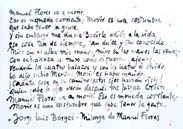 Manuel Flores va a morir.
Eso es moneda corriente. Morir es una costumbre
que sabe tener la gente.
Y sin embargo me duele decirle adiós a la vida,
esa cosa tan de siempre, tan dulce y tan conocida.
Miro en el alba mis manos, miro en las manos las venas;
con extrañeza las miro como si fueran ajenas.
Vendrán los cuatro balazos y con los cuatro el olvido
lo dijo el sabio Merlín: Morir es haber nacido.
Cuánta cosa en su camino estos ojos habrán visto!
Quién sabe lo que verán después que me juzgue Cristo.
Manuel Flores va a morir. Eso es moneda corriente.
Morir es una costumbre que sabe tener la gente.
Jorge Luis Borges - Milonga de Manuel Flores